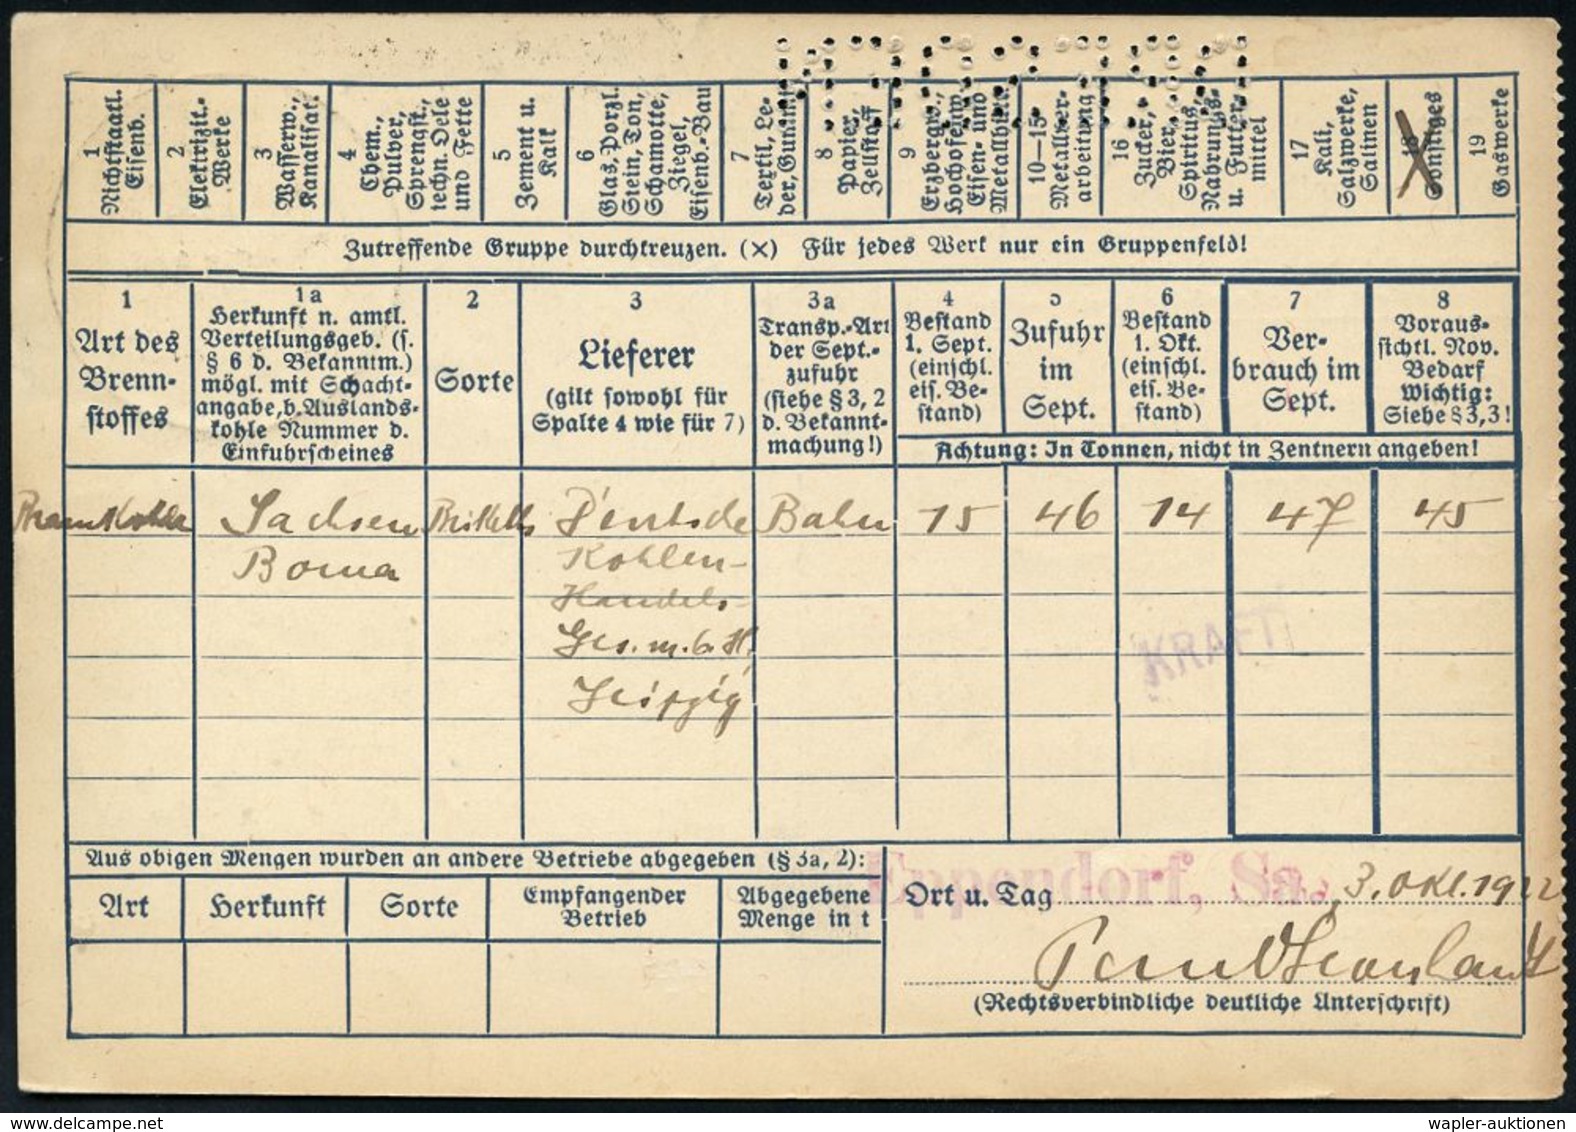 1
Nichtstaatl.
Eisenb.
2
Elektrizit.-
Werke
3
Wasserw.,
Kanalisat.
4
Chem.,
Pulver,
Sprengst.,
techn. Oele
und Fette
5
Zement u.
Kalk
6
Glas, Porzl.
Stein, Ton,
Schamotte,
Ziegel,
Eisenb.-Bau
7
Textil, Le-
der, Gummi
8
Papier,
Zellstoff
9
Erzbergw.,
Hochofenw.
Eisen- und
Metallhütt.
10—15
Metallver-
arbeitung
16
Zucker,
Bier,
Spiritus,
Nahrungs-
u. Futter-
mittel
17
Kali,
Salzwerke,
Salinen
18
Sonstiges
19
Gaswerke
Zutreffende Gruppe durchkreuzen. (×) Für jedes Werk nur ein Gruppenfeld!
1
Art des
Brenn-
stoffes
1a
Herkunft n. amtl.
Verteilungsgeb. (s.
§ 6 d. Bekanntm.)
mögl. mit Schacht-
angabe, b. Auslands-
kohle Nummer d.
Einfuhrscheines
2
Sorte
3
Lieferer
(gilt sowohl für
Spalte 4 wie für 7)
3a
Transp.-Art
der Sept.-
zufuhr
(siehe § 3, 2
d. Bekannt-
machung!)
4
Bestand
1. Sept.
(einschl.
eis. Be-
stand)
5
Zufuhr
im
Sept.
6
Bestand
1. Okt.
(einschl.
eis. Be-
stand)
7
Ver-
brauch im
Sept.
8
Voraus-
sichtl. Nov.
Bedarf
Wichtig:
Siehe § 3,3!
Achtung: In Tonnen, nicht in Zentnern angeben!
Braunkohle Sachsen Briketts Deutsche Bahn 15 46 14 47 45
Borna Kohlen-
Handels-
Ges. m. b. H.
Leipzig
KRAFT
Aus obigen Mengen wurden an andere Betriebe abgegeben (§ 3a, 2):
Art
Herkunft
Sorte
Empfangender
Betrieb
Abgegebene
Menge in t
Eppendorf, Sa.
Ort u. Tag 3. Okt. 1922
(Rechtsverbindliche deutliche Unterschrift)
wapler-auktionen